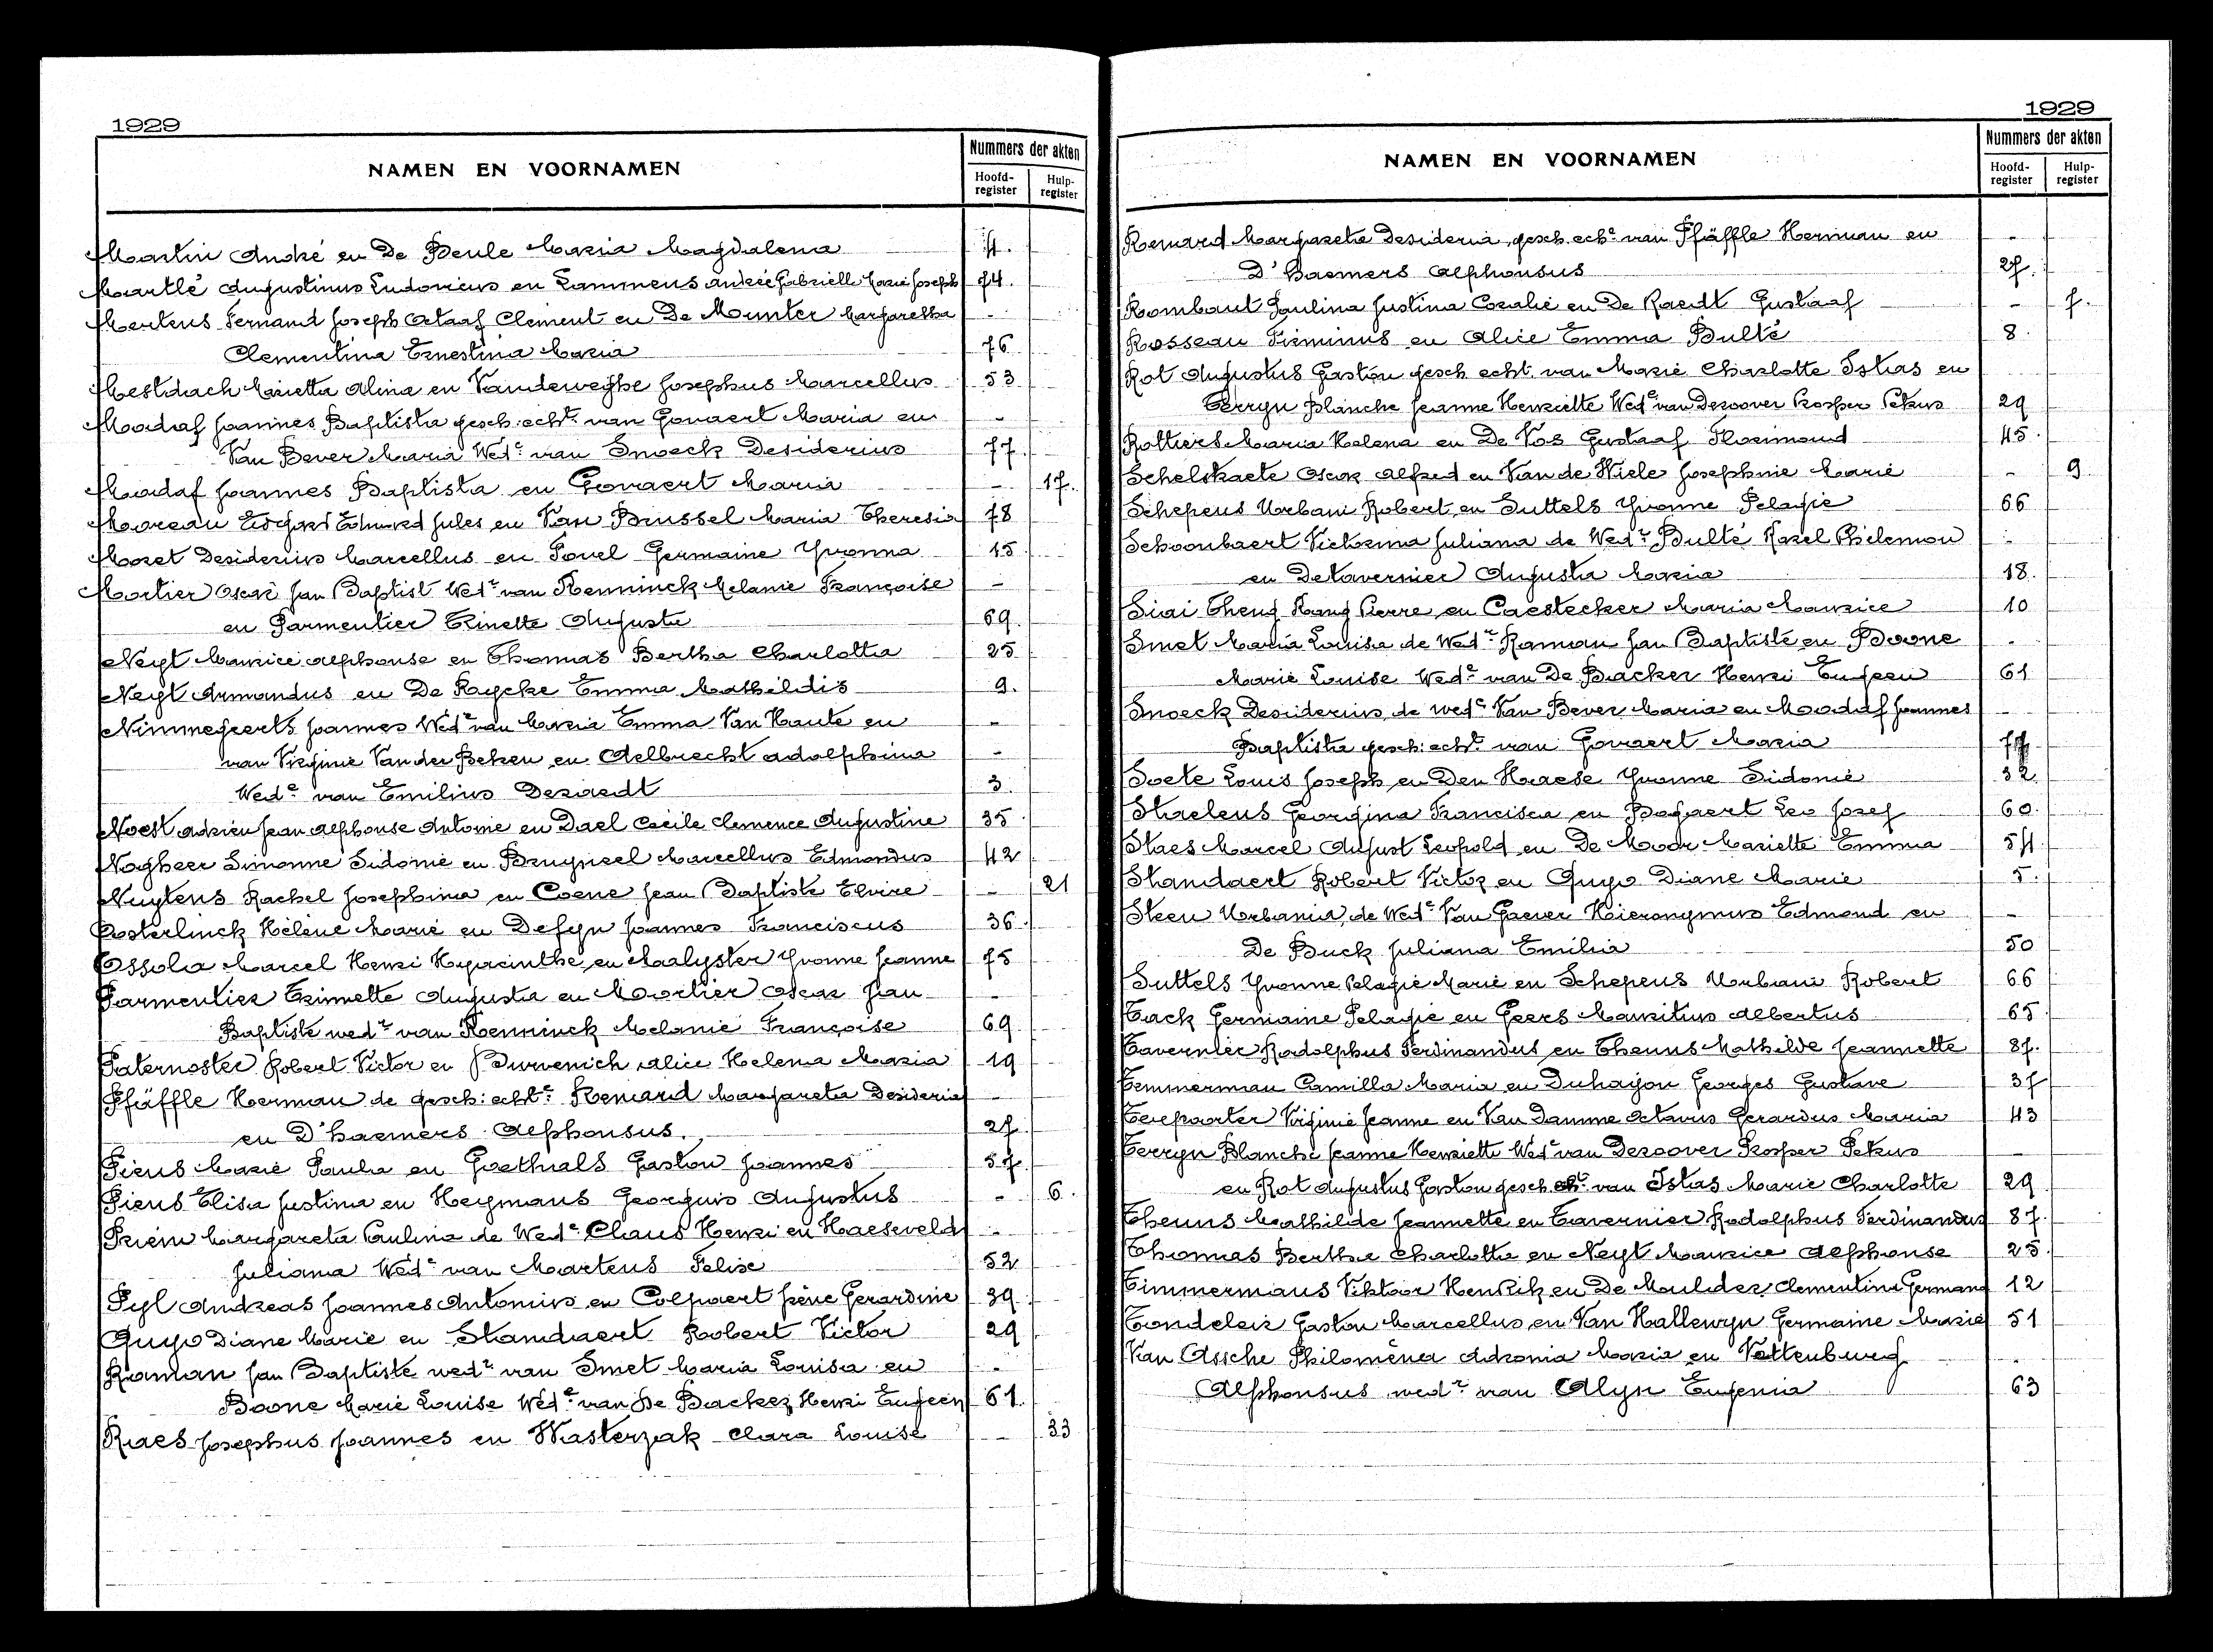 1929
NAMEN EN VOORNAMEN
Nummers der akten
Hoofd-register
Hulp-register
Martin André en De Beule Maria Magdalena 4.
Martlé Augustinus Ludovicus en Lammens Andrée Gabrielle Marie Joseph 74.
Mertens Fernand Joseph Octaaf Clement en De Munter Margaretha -
Clementina Ernestina Maria 76
Mestdach Marietta Alina en Vandeweghe Josephus Marcellus 53
Moadaf Joannes Baptista gesch. echt. van Govaert Maria en -
Van Bever Maria Wede van Snoeck Desiderius 77.
Moadaf Joannes Baptista en Govaert Maria - 17.
Moreau Edgard Edmond Jules en Van Brussel Maria Theresia 78
Moret Desiderius Marcellus en Povel Germaine Yvonna 15
Mortier Oscar Jan Baptist Wedr van Renninck Melanie Françoise -
en Parmentier Trinette Auguste 69.
Neyt Maurice Alphonse en Thomas Bertha Charlotta 25
Neyt Armandus en De Rycke Emma Mathildis 9.
Nimmegeerts Joannes Wedr van Maria Emma Van Haute en -
van Virginie Van der Beken en Aelbrecht Adolphina -
Wede van Emilius Deraedt 3.
Noest Adrien Jean Alphonse Antoine en Dael Cecile Clemence Augustine 35
Nogheer Simonne Sidonie en Bruyneel Marcellus Edmondus 42
Nuytens Rachel Josephina en Coene Jean Baptiste Elvire - 21
Oosterlinck Hélène Marie en Defyn Joannes Franciscus 36.
Ossola Marcel Henri Hyacinthe en Maalyster Yvonne Jeanne 75
Parmentier Trinnette Augusta en Moortier Oscar Jean -
Baptiste wedr van Renninck Melanie Françoise 69
Paternoster Robert Victor en Burvenich Alice Helena Maria 19
Pfäffle Herman de gesch: echte Renard Margareta Desideria -
en D'haemers Alphonsus. 27
Piens Marie Paula en Goethals Gaston Joannes 57.
Piens Elisa Justina en Heymans Georguis Augustus - 6.
Priem Margareta Paulina de Wede Claus Henri en Haeseveld -
Juliana Wede van Martens Felix 52
Pyl Andreas Joannes Antonius en Colpaert Irène Gerardine 39
Quyo Diane Marie en Standaert Robert Victor 29
Roman Jan Baptiste wedr van Smet Maria Louisa en -
Boone Marie Louise Wede van De Backer Henri Eugeen 61.
Raes Josephus Joannes en Wasterzak Clara Louise - 33
1929
NAMEN EN VOORNAMEN
Nummers der akten
Hoofd-register
Hulp-register
Renard Margareta Desideria, gesch. echte van Pfäffle Herman en -
D'Haemers Alphonsus 27.
Rombaut Paulina Justina Coralie en De Raedt Gustaaf - 7.
Rosseau Firminus en Alice Emma Bulté 8.
Rot Augustus Gaston gesch echt. van Marie Charlotte Istas en
Terryn Blanche Jeanne Henriette Wede van Deroover Prosper Petrus 29
Rottiers Maria Helena en De Vos Gustaaf Florimond 45.
Schelstraete Oscar Alfred en Van de Wiele Josephine Marie - 9.
Schepens Urbani Robert en Suttels Yvonne Pelagie 66
Schoonbaert Victorina Juliana de Wedr Bulté Karel Philemon -
en Detavernier Augusta Maria 18.
Siai Theng Kang Pierre en Caestecker Maria Maurice 10
Smet Maria Louisa de Wedr Roman Jan Baptiste en Boone -
Marie Louise Wede van De Backer Henri Eugeen 61
Snoeck Desiderius, de wede Van Bever Maria en Moadaf Joannes
Baptista gesch: echt. van Govaert Maria 77
Soete Louis Joseph en Den Haese Yvonne Sidonie 32
Staelens Georgina Francisca en Bogaert Leo Josef 60.
Staes Marcel August Leopold en De Moor Mariette Emma 54.
Standaert Robert Victor en Quyo Diane Marie 5.
Steen Urbania, de Wede Van Gaever Hieronymus Edmond en -
De Buck Juliana Emilia 50
Suttels Yvonne Pelagie Marie en Schepens Urbani Robert 66
Tack Germaine Pelagie en Geers Mauritius Albertus 65
Tavernier Rodolphus Ferdinandus en Theuns Mathilde Jeannette 87.
Temmerman Camilla Maria en Duhayon Georges Gustave 37
Terpoorter Virginie Jeanne en Van Damme Octavus Gerardus Maria 43
Terryn Blanche Jeanne Henriette Wede van Deroover Prosper Petrus -
en Rot Augustus Gaston gesch. echt. van Istas Marie Charlotte 29
Theuns Mathilde Jeannette en Tavernier Rodolphus Ferdinandus 87.
Thomas Bertha Charlotta en Neyt Maurice Alphonse 25.
Timmermans Viktoor Hendrik en De Meulder Clementina Germana 12
Tondeleir Gaston Marcellus en Van Hallewyn Germaine Marie 51
Van Assche Philomèna Adronia Maria en Vattenburg -
Alphonsus wedr van Alyn Eugenia 63